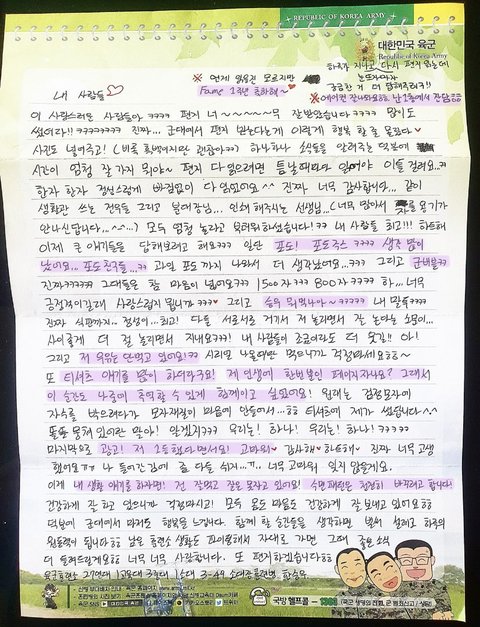 REPUBLIC OF KOREA ARMY
대한민국 육군
Republic of Korea Army
하루가 지나고 다시 편지 읽는데
눈뜨자마자
궁금한 거 더 답해주려구!!
※ 언제 읽을진 모르지만
Fame 1주년 축하해~
※ 에어컨 잘나와요ㅎㅎ 난 1층에서 잔답ㅎㅎ
내 사람들♡
이 사랑스러운 사람들아 ㅋㅋㅋㅋ 편지 너~~~~~무 잘 받았습니다ㅋㅋㅋㅋ 많이도
썼더라!! ㅋㅋㅋㅋㅋㅋㅋㅋ 진짜... 군대에서 편지 받는다는게 이렇게 행복할 줄 몰랐다♥
사진도 넣어주고! (비록 흑백이지만 괜찮아ㅋㅋ) 하나하나 소식들을 알려주는 덕분에
시간이 엄청 잘 가지 뭐야~ 편지 다 읽으려면 틈날때마다 읽어야 이틀 걸려요..ㅋ
한자 한자 정성스럽게 빠짐없이 다 읽었어요^^ 진짜 너무 감사합니다... 같이
생활관 쓰는 전우들 그리고 분대장님... 인쇄 해주시는 선생님...(너무 많아서 용기가
안나신답니다...^^...) 모두 엄청 놀라고 부러워하셨습니다!! 내 사람들 최고!!! 하트해
이제 큰 얘기들을 답해보려고 해요ㅋㅋ 일단 포도! 포도주스 ㅋㅋㅋㅋ 생각 많이
났어요... 포도친구들...ㅋㅋ 과일 포도까지 나와서 더 생각났어요...ㅋㅋㅋ 그리고 군내몰ㅋㅋ
진짜ㅋㅋㅋㅋㅋ 그대들은 참 마음이 넓어요ㅋㅋㅋ 1500자ㅋㅋㅋ 800자ㅋㅋㅋㅋ 하... 너무
긍정적이길래 사랑스럽지 뭡니까ㅋㅋㅋ♥ 그리고 승우 뭐먹나아~ㅋㅋㅋㅋㅋ 내 말들ㅋㅋㅋㅋ
진짜 식판까지.. 정성이...최고! 다들 서로서로 거기서 날 놀리면서 잘 논다는 소문이...
사이좋게 더 절 놀리면서 지내요ㅋㅋㅋ! 내 사람들이 조금이라도 더 웃길!! 아!
그리고 저 우유는 안먹고 있어요!ㅋㅋ 시리얼 나올때만 먹으니까 걱정마세요ㅎㅎ~
또 티셔츠 얘기를 많이 하더라구요! 제 인생에 한번뿐인 페이지자나요? 그래서
이 순간도 나중에 추억할 수 있게 함께이고 싶었어요! 원래는 검정모자에
자수를 박으려다가 모자재질이 마음에 안들어서...ㅎㅎ 티셔츠에 제가 썼습니다^^
똘똘 뭉쳐 있어란 말야! 알겠지ㅋㅋㅋ 우리는! 하나! 우리는! 하나! ㅋㅋㅋㅋㅋ
마지막으로 광고! 저 1등했다면서요! 고마워♥ 감사해♥ 하트해♥ 진짜 너무 고생
했어요ㅠㅠ 나 들어간 김에 좀 다들 쉬지..ㅠ.. 너무 고마워 잊지 않을게요.
이제 내 생활 얘기를 하자면! 전 잘먹고 잘을 못자고 있어요! 수면패턴은 천천히 바꾸려고 합니다!
건강하게 잘 하고 있으니까 걱정마시고! 모두 몸도 마음도 건강하게 잘 보내고 있어요ㅎㅎ
덕분에 군대에서 마저도 행복을 느낍니다. 함께 할 순간들을 생각하면 벌써 설레고 하루의
원동력이 됩니다ㅎㅎ 남은 훈련소 생활도 파이팅해서 자대로 가면 그때 좋은 소식
더 들려드릴게요ㅎㅎ 너무 너무 사랑합니다. 또 편지하겠습니다ㅎㅎ
육군훈련소 27연대 1교육대 3중대 1소대 3-49 소대장훈련병 한승우
국방헬프콜 - 1303